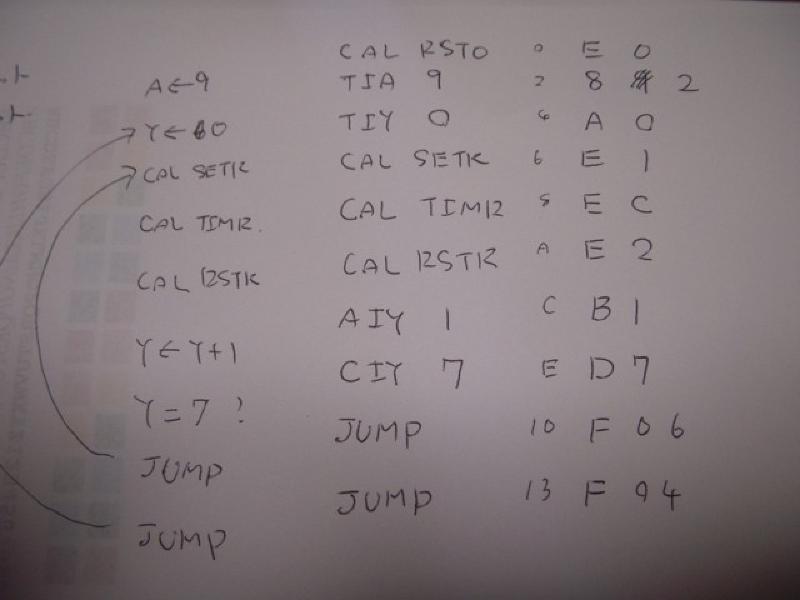 CAL RSTO 0 E 0
A←9 TIA 9 2 8 2
Y←0 TIY 0 4 A 0
CAL SETR CAL SETR 6 E 1
CAL TIMR. CAL TIMR 8 E C
CAL RSTR CAL RSTR A E 2
AIY 1 C B 1
Y←Y+1
CIY 7 E D 7
Y=7 ?
JUMP 10 F 0 6
JUMP
JUMP 13 F 0 4
JUMP